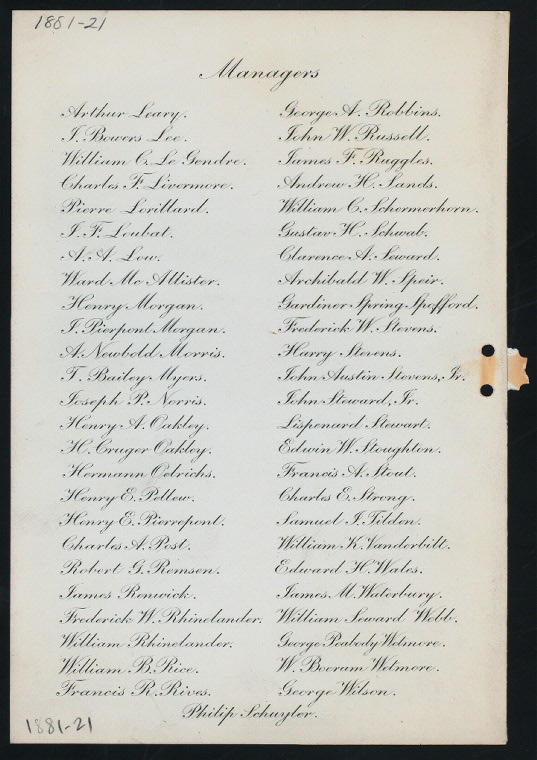 1881-21
Managers
Arthur Leary.
J. Bowers Lee.
William C. Le Gendre.
Charles F. Livermore.
Pierre Lorillard.
J. F. Loubat.
A. A. Low.
Ward Mc Allister.
Henry Morgan.
J. Pierpont Morgan.
A. Newbold Morris.
T. Bailey Myers.
Joseph P. Norris.
Henry A. Oakley.
H. Cruger Oakley.
Hermann Oelrichs.
Henry E. Pellew.
Henry E. Pierrepont.
Charles A. Post.
Robert G. Remsen.
James Renwick.
Frederick W. Rhinelander.
William Rhinelander.
William B. Rice.
Francis R. Rives.
George A. Robbins.
John W. Russell.
James F. Ruggles.
Andrew H. Sands.
William C. Schermerhorn.
Gustav H. Schwab.
Clarence A. Seward.
Archibald W. Speir.
Gardiner Spring Spofford.
Frederick W. Stevens.
Harry Stevens.
John Austin Stevens, Jr.
John Steward, Jr.
Lispenard Stewart.
Edwin W. Stoughton.
Francis A. Stout.
Charles E. Strong.
Samuel J. Tilden.
William K. Vanderbilt.
Edward H. Wales.
James M. Waterbury.
William Seward Webb.
George Peabody Wetmore.
W. Boerum Wetmore.
George Wilson.
Philip Schuyler.
1881-21